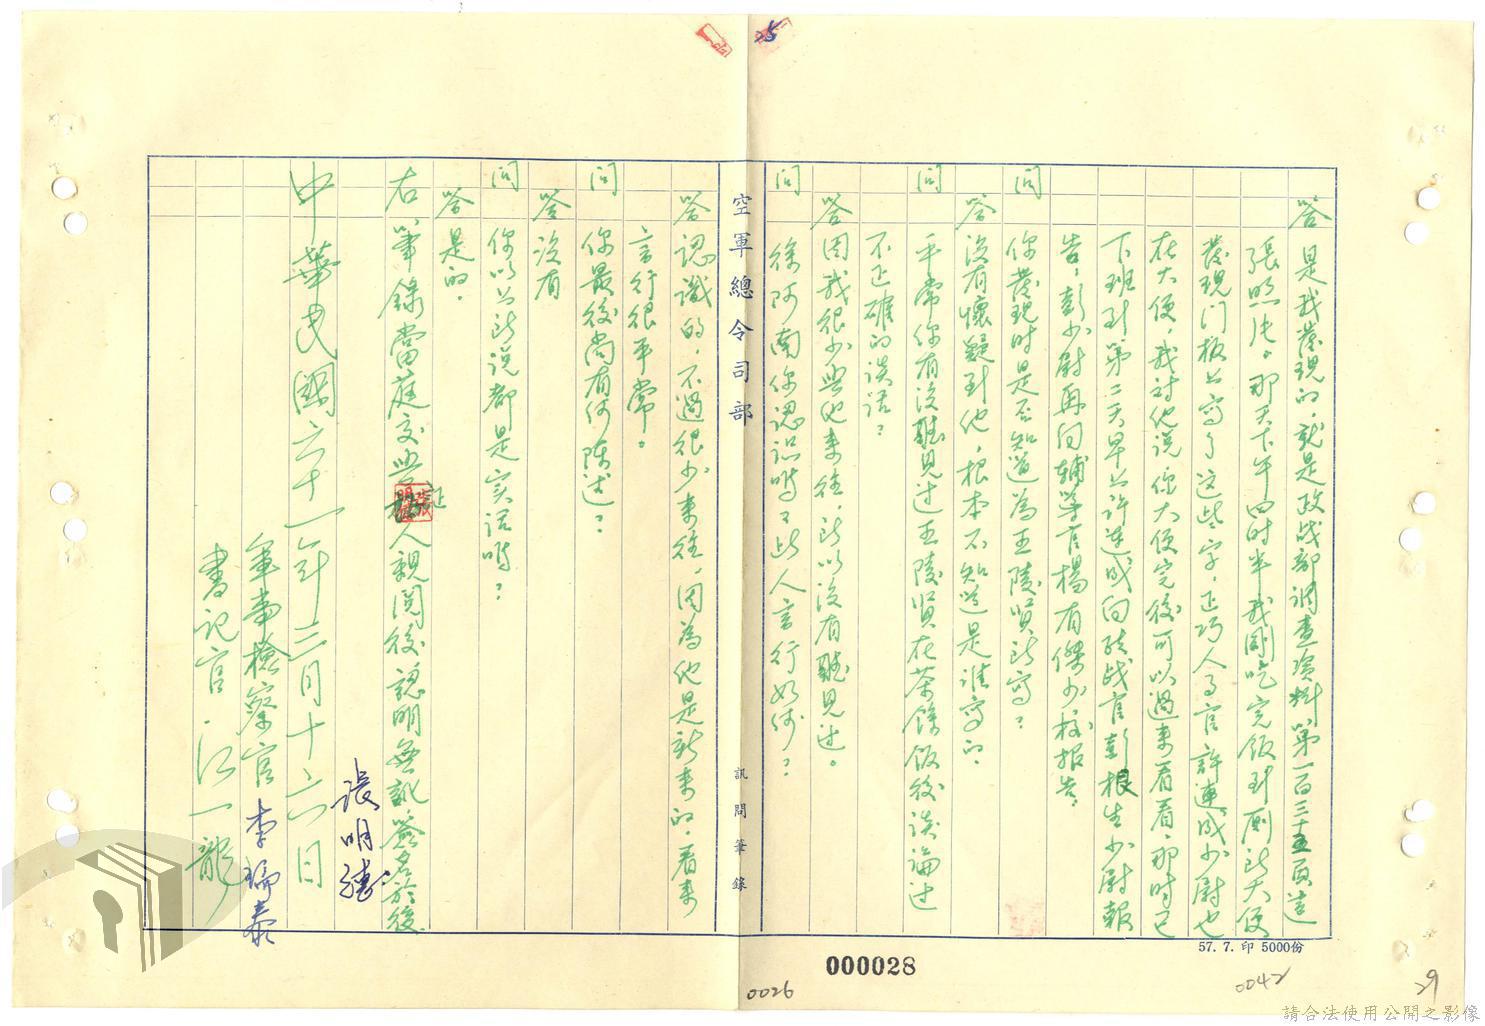 答 是我发現的，就是政战部調查資料第一百三十五頁這
張照片。那天下午四时半我剛吃完飯到厕所大便
发現门板上写了这些字，正巧人事官許連成少尉也
在大便，我对他说你大便完後可以過来看看，那时已
下班到第二天早上許連成向政战官彭根生少尉報
告，彭少尉再向輔導官楊有傑少校报告。
問 你发現时是否知道为王陵贤所写？
答 没有懷疑到他，根本不知道是谁写的。
問 平常你有没聽見过王陵贤在茶餘饭後谈論过
不正確的谈话？
答 因我很少與他来往，所以没有聽見过。
問 徐阿南你認识嗎？此人言行如何？
空軍總令司部
訊問筆錄
答 認識的，不過很少来往，因為他是新来的，看来
言行很平常。
問 你最後尚有何陳述？
答 没有
問 你以上所说都是实话嗎？
答 是的。
右筆錄當庭交與証人親閱後認明無訛簽名於後
張明德
中華民國六十一年三月十六日
軍事檢察官 李瑞泰
書記官 江一龍
57. 7. 印 5000份
000028
0026
0042
29
請合法使用公開之影像